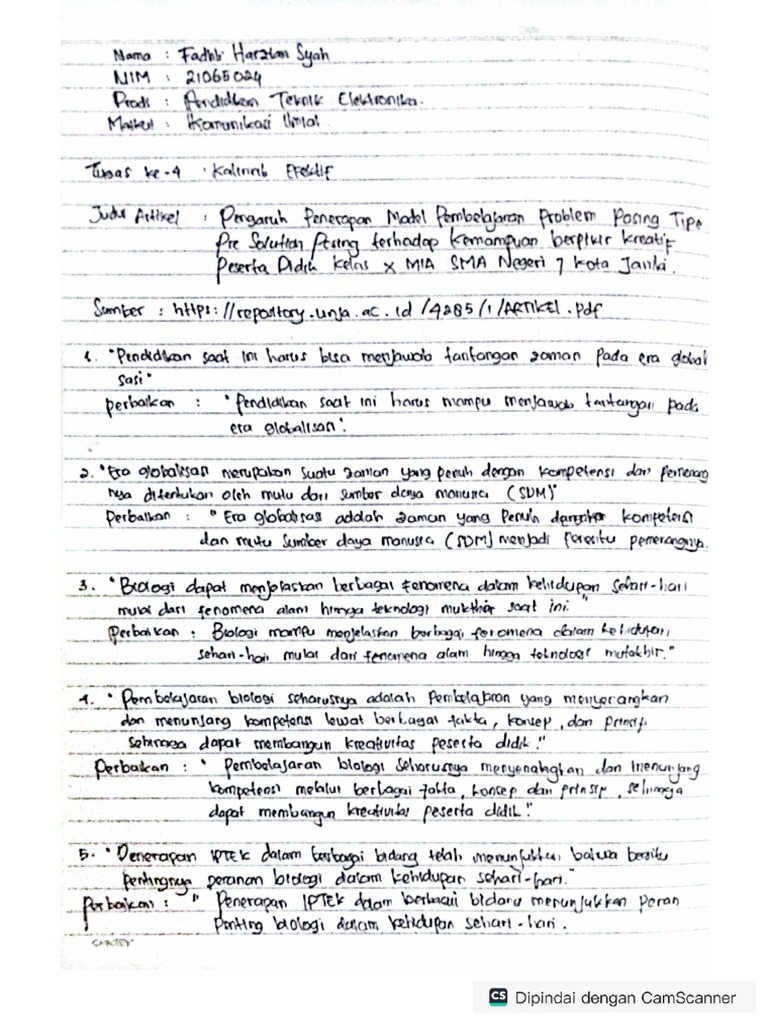 Nama : Fadhli Harzian Syah
NIM : 21065024
Prodi : Pendidikan Teknik Elektronika.
Matkul : Komunikasi Ilmiah
Tugas ke-4 : Kalimat Efektif
Judul Artikel : Pengaruh Penerapan Model Pembelajaran Problem Posing Tipe
Pre Solution Posing terhadap kemampuan berpikir kreatif
Peserta Didik kelas X MIA SMA Negeri 7 Kota Jambi.
Sumber : https://repository.unja.ac.id/4285/1/ARTIKEL.pdf
1. "Pendidikan saat ini harus bisa menjawab tantangan zaman pada era global
sasi"
perbaikan : "Pendidikan saat ini harus mampu menjawab tantangan pada
era globalisasi".
2. "Era globalisasi merupakan suatu zaman yang penuh dengan kompetensi dan pemenang
nya ditentukan oleh mutu dari sumber daya manusia (SDM)"
Perbaikan : "Era globalisasi adalah zaman yang penuh dengan kompetensi
dan mutu sumber daya manusia (SDM) menjadi penentu pemenangnya.
3. "Biologi dapat menjelaskan berbagai fenomena dalam kehidupan sehari-hari
mulai dari fenomena alam hingga teknologi mutakhir saat ini."
Perbaikan : Biologi mampu menjelaskan berbagai fenomena dalam kehidupan
sehari-hari mulai dari fenomena alam hingga teknologi mutakhir."
4. "Pembelajaran biologi seharusnya adalah Pembelajaran yang menyenangkan
dan menunjang kompetensi lewat berbagai fakta, konsep, dan prinsip
sehingga dapat membangun kreativitas peserta didik."
Perbaikan : "Pembelajaran biologi seharusnya menyenangkan dan menunjang
kompetensi melalui berbagai fakta, konsep dan prinsip, sehingga
dapat membangun kreativitas peserta didik."
5. "Penerapan IPTEK dalam berbagai bidang telah menunjukkan bahwa begitu
pentingnya peranan biologi dalam kehidupan sehari-hari."
Perbaikan : "Penerapan IPTEK dalam berbagai bidang menunjukkan peran
Penting biologi dalam kehidupan sehari-hari.
CS Dipindai dengan CamScanner